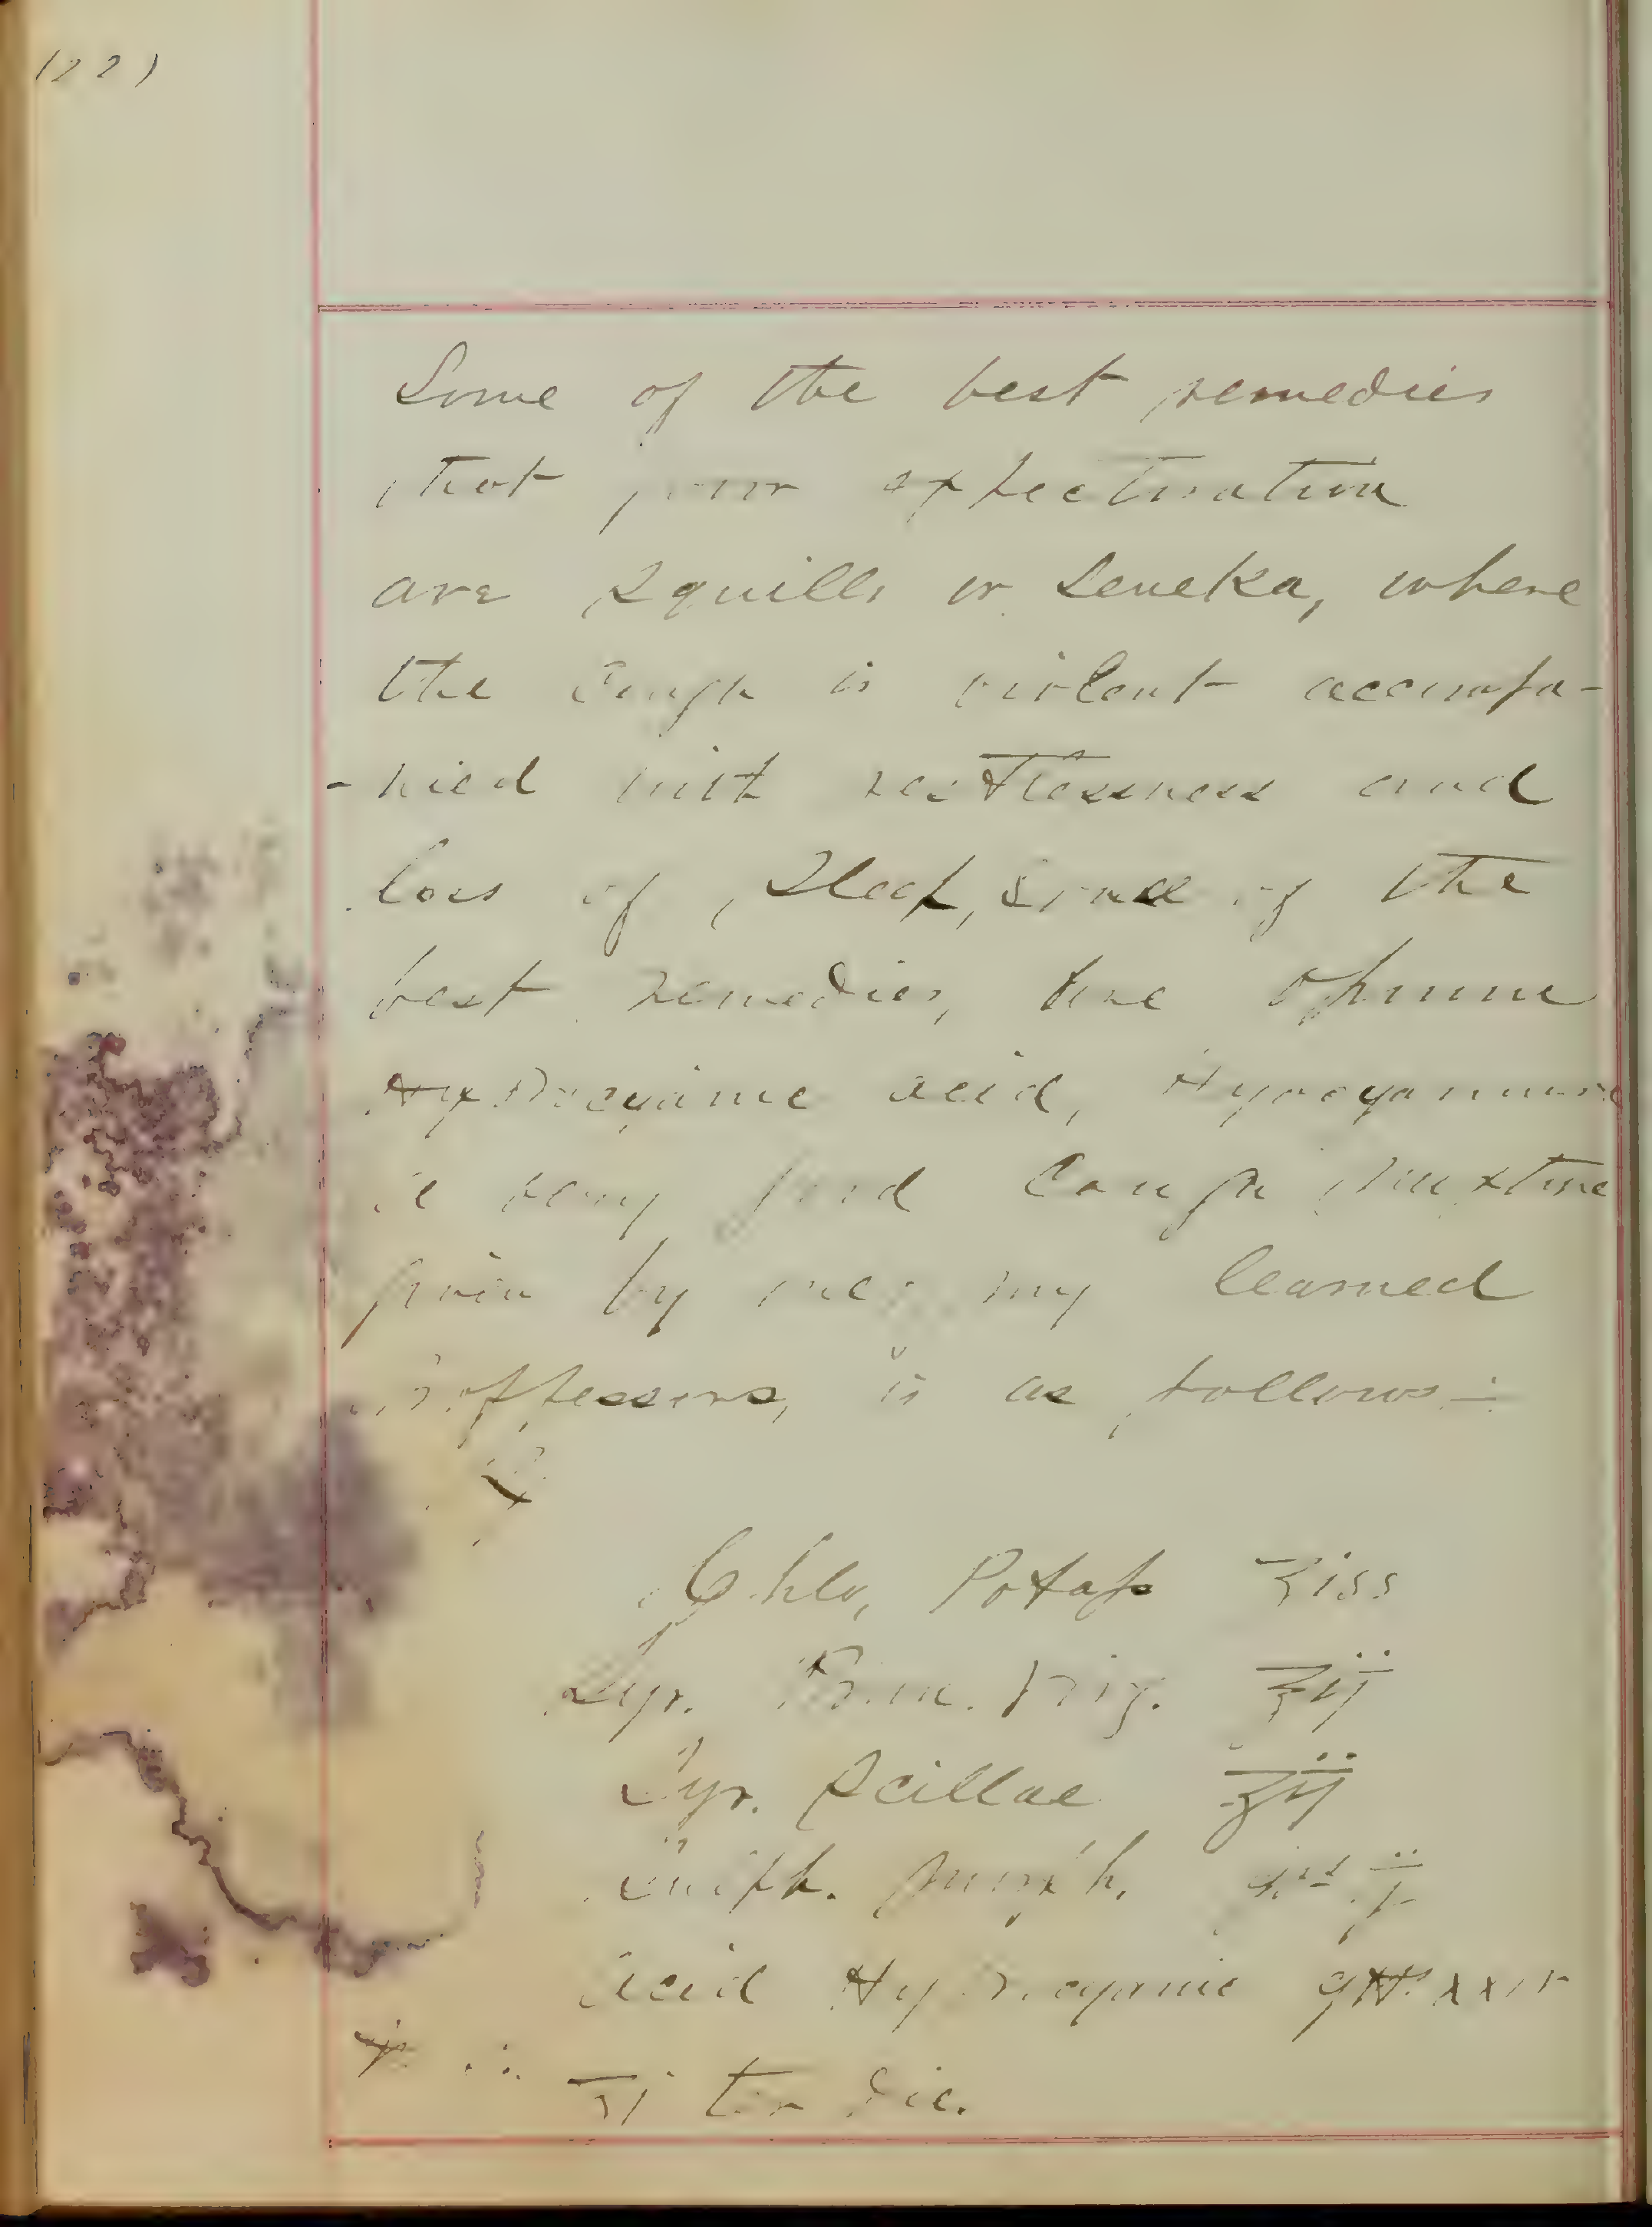 (22)
Some of the best remedies
that expectoration
are Squills or Seneka, where
the Cough is violent accompa-
-nied with restlessness and
loss of Sleep, some of the
best remedies, are Opium
Hydrocyanic acid, Hyoscyamus
a very good Cough Mixture
given by one of my learned
Proffessors, is as follows:-
Chlo, Potass ʒiss
Syr. Prun. Virg. ℥ij
Syr. Scillae ℥ij
Sulph. Morph. grs. ij
Acid Hydrocyanic gtt. xxiv
ʒi ter die.